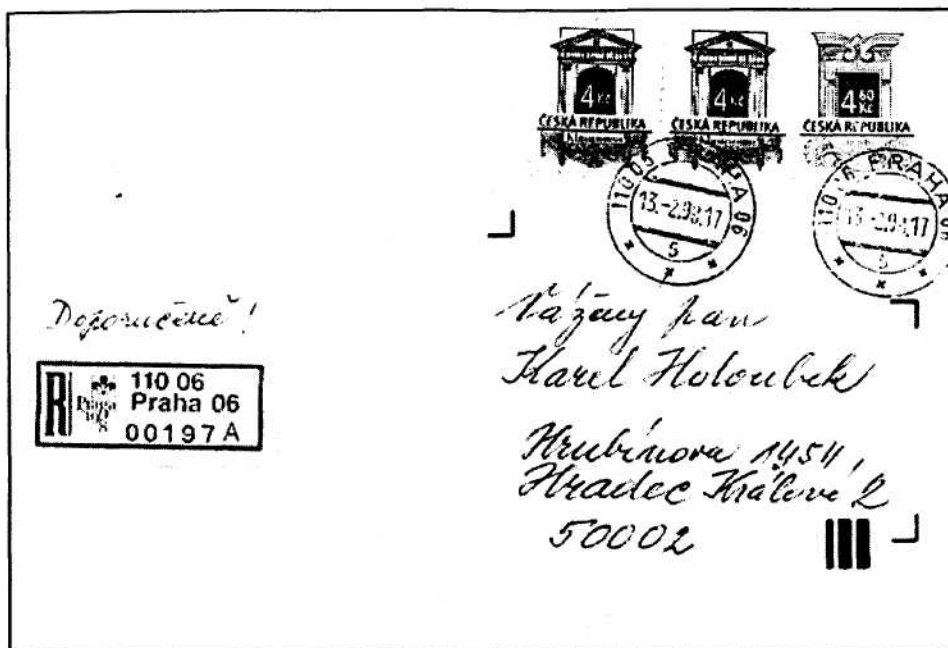 4 Kč
ČESKÁ REPUBLIKA
4 Kč
ČESKÁ REPUBLIKA
4 60 Kč
ČESKÁ REPUBLIKA
110 06 PRAHA 06
13.-2.98.17
5
110 06 PRAHA 06
13.-2.98.17
5
Doporučeně!
R
Praha
1998
110 06
Praha 06
00197 A
Vážený pan
Karel Holoubek
Hrubínova 1454,
Hradec Králové 2
50002